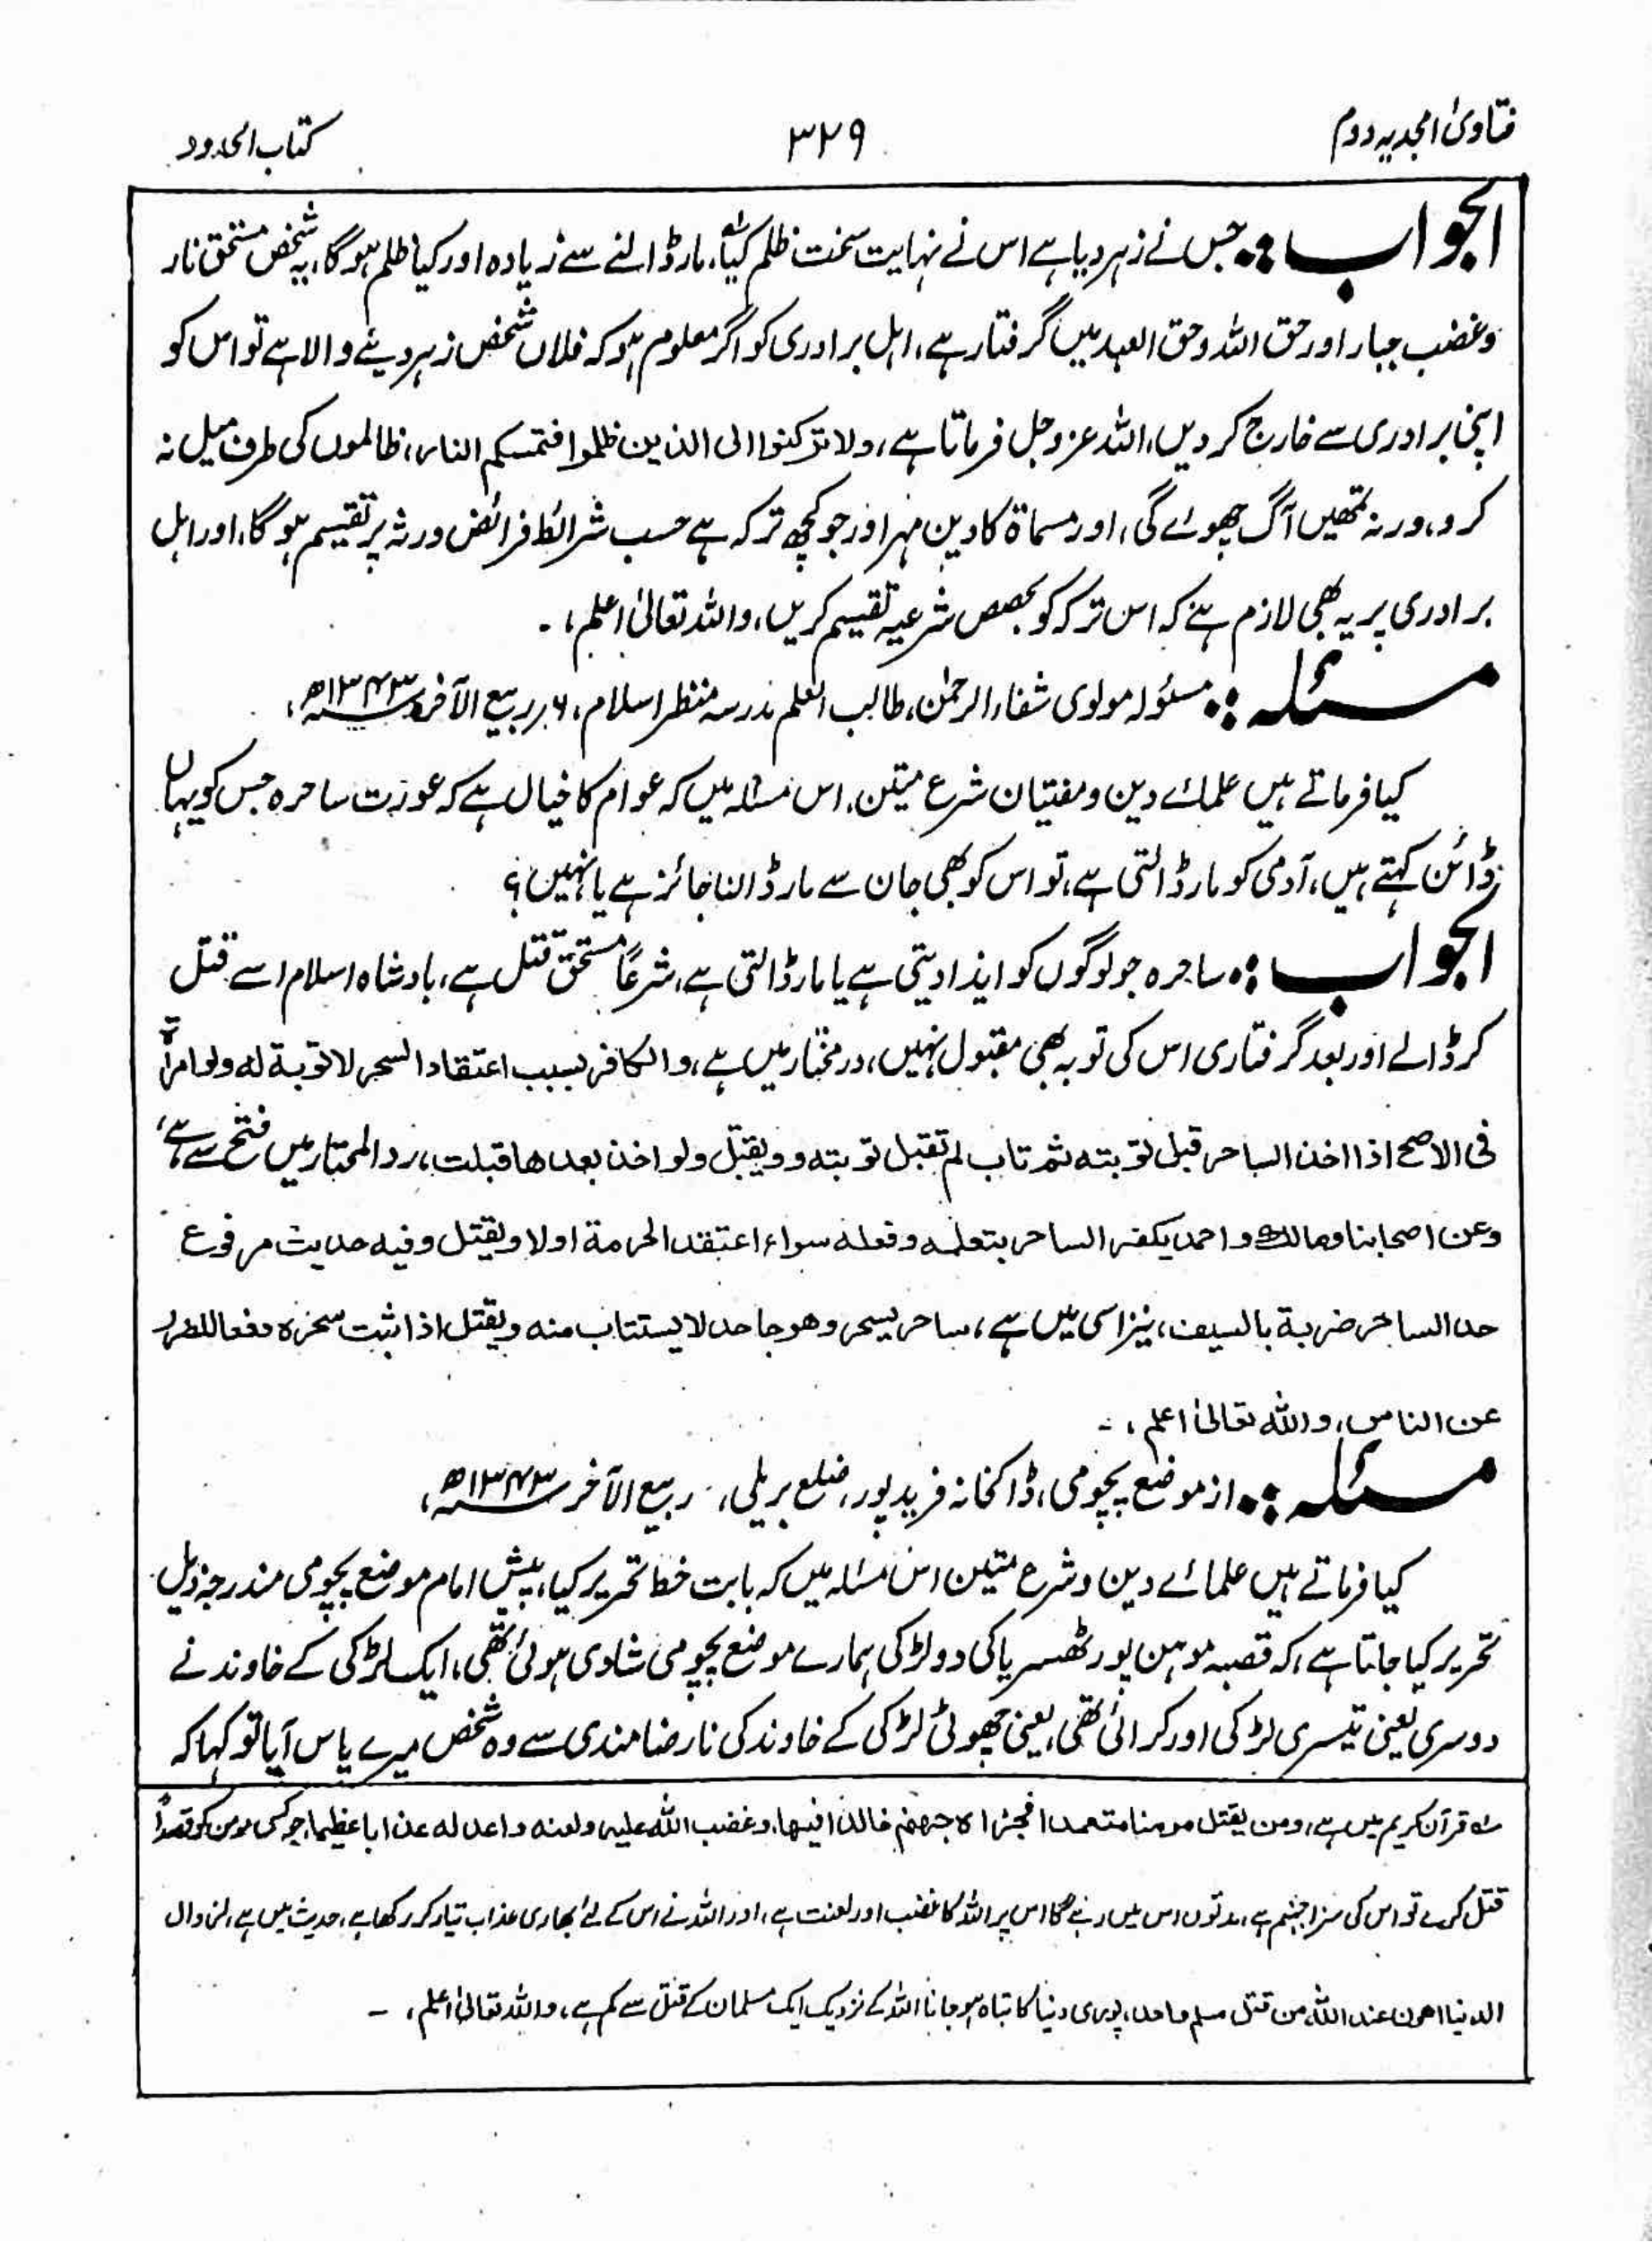 فتاویٰ امجدیہ دوم
۳۲۹
کتاب الحدود
الجواب:۔ جس نے زہر دیا ہے اس نے نہایت سخت ظلم کیا، مار ڈالنے سے زیادہ اور کیا ظلم ہوگا، یہ شخص مستحق نار
وغضب جبار اور حق اللہ وحق العبد میں گرفتار ہے، اہل برادری کو اگر معلوم ہو کہ فلاں شخص زہر دینے والا ہے تو اس کو
اپنی برادری سے خارج کر دیں، اللہ عزوجل فرماتا ہے، ولا ترکنوا الی الذین ظلموا فتمسکم النار، ظالموں کی طرف میل نہ
کرو، ورنہ تمھیں آگ چھوئے گی، اور مسماۃ کا دین مہر اور جو کچھ ترکہ ہے حسب شرائط فرائض ورثہ پر تقسیم ہوگا، اور اہل
برادری پر یہ بھی لازم ہے کہ اس ترکہ کو بحصص شرعیہ تقسیم کریں، واللہ تعالیٰ اعلم، ۔
مسئلہ:۔ مسئولہ مولوی شفاء الرحمٰن، طالب العلم مدرسہ منظر اسلام، ۶؍ ربیع الآخر ۱۳۴۳ھ،
کیا فرماتے ہیں علمائے دین ومفتیان شرع متین، اس مسئلہ میں کہ عوام کا خیال ہے کہ عورت ساحرہ جس کو یہاں
ڈائن کہتے ہیں، آدمی کو مار ڈالتی ہے، تو اس کو بھی جان سے مار ڈالنا جائز ہے یا نہیں؟
الجواب:۔ ساحرہ جو لوگوں کو ایذا دیتی ہے یا مار ڈالتی ہے، شرعاً مستحق قتل ہے، بادشاہ اسلام اسے قتل
کر ڈالے اور بعد گرفتاری اس کی توبہ بھی مقبول نہیں، در مختار میں ہے، والکافر بسبب اعتقاد السحر لا توبۃ لہ ولو امرأۃ
فی الاصح اذا اخذ الساحر قبل توبتہ ثم تاب لم تقبل توبتہ و ویقتل ولو اخذ بعدھا قبلت، رد المحتار میں فتح سے ہے،
وعن اصحابنا ومالک واحمد یکفر الساحر بتعلمہ وفعلہ سواء اعتقد الحرمۃ اولا ویقتل وفیہ حدیث مرفوع
حد الساحر ضربۃ بالسیف، نیز اسی میں ہے، ساحر یسحر وھو جاحد لا یستتاب منہ ویقتل اذا ثبت سحرہ دفعا للضرر
عن الناس، واللہ تعالیٰ اعلم، ۔
مسئلہ:۔ از موضع پچومی، ڈاکخانہ فرید پور، ضلع بریلی، ربیع الآخر ۱۳۴۳ھ،
کیا فرماتے ہیں علمائے دین وشرع متین اس مسئلہ میں کہ بابت خط تحریر کیا، پیش امام موضع پچومی مندرجہ ذیل
تحریر کیا جاتا ہے، کہ قصبہ موہن پور ٹھسریا کی دو لڑکی ہمارے موضع پچومی شادی ہوئی تھی، ایک لڑکی کے خاوند نے
دوسری یعنی تیسری لڑکی اور کرائی تھی، یعنی چھوٹی لڑکی کے خاوند کی نارضامندی سے وہ شخص میرے پاس آیا تو کہا کہ
لہ قرآن کریم میں ہے، ومن یقتل مومنا متعمدا فجزاؤہ جھنم خالدا فیھا، وغضب اللہ علیہ ولعنہ واعد لہ عذابا عظیما، جو کسی مومن کو قصداً
قتل کرے تو اس کی سزا جہنم ہے، مدتوں اس میں رہے گا اس پر اللہ کا غضب اور لعنت ہے، اور اللہ نے اس کے لئے بھاری عذاب تیار کر رکھا ہے، حدیث میں ہے، لزوال
الدنیا اھون عند اللہ من قتل مسلم واحد، پوری دنیا کا تباہ ہو جانا اللہ کے نزدیک ایک مسلمان کے قتل سے کم ہے، واللہ تعالیٰ اعلم، ۔